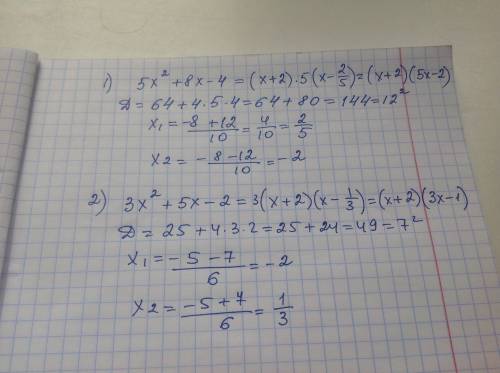 1) 5x² + 8x - 4 = (x+2)·5(x - 2/5) = (x+2)(5x-2)
D = 64 + 4·5·4 = 64 + 80 = 144 = 12²
x₁ = -8+12/10 = 4/10 = 2/5
x2 = -8-12/10 = -2
2) 3x² + 5x - 2 = 3(x+2)(x - 1/3) = (x+2)(3x-1)
D = 25 + 4·3·2 = 25 + 24 = 49 = 7²
x₁ = -5-7/6 = -2
x2 = -5+7/6 = 1/3